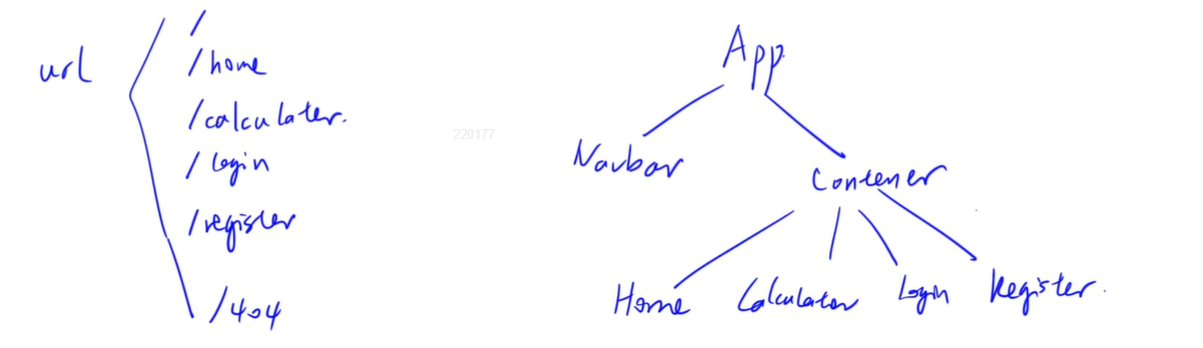 url
/
/home
/calculater.
/login
/register
/404
220177
App
Navbar
Contener
Home Calculator Login Register.